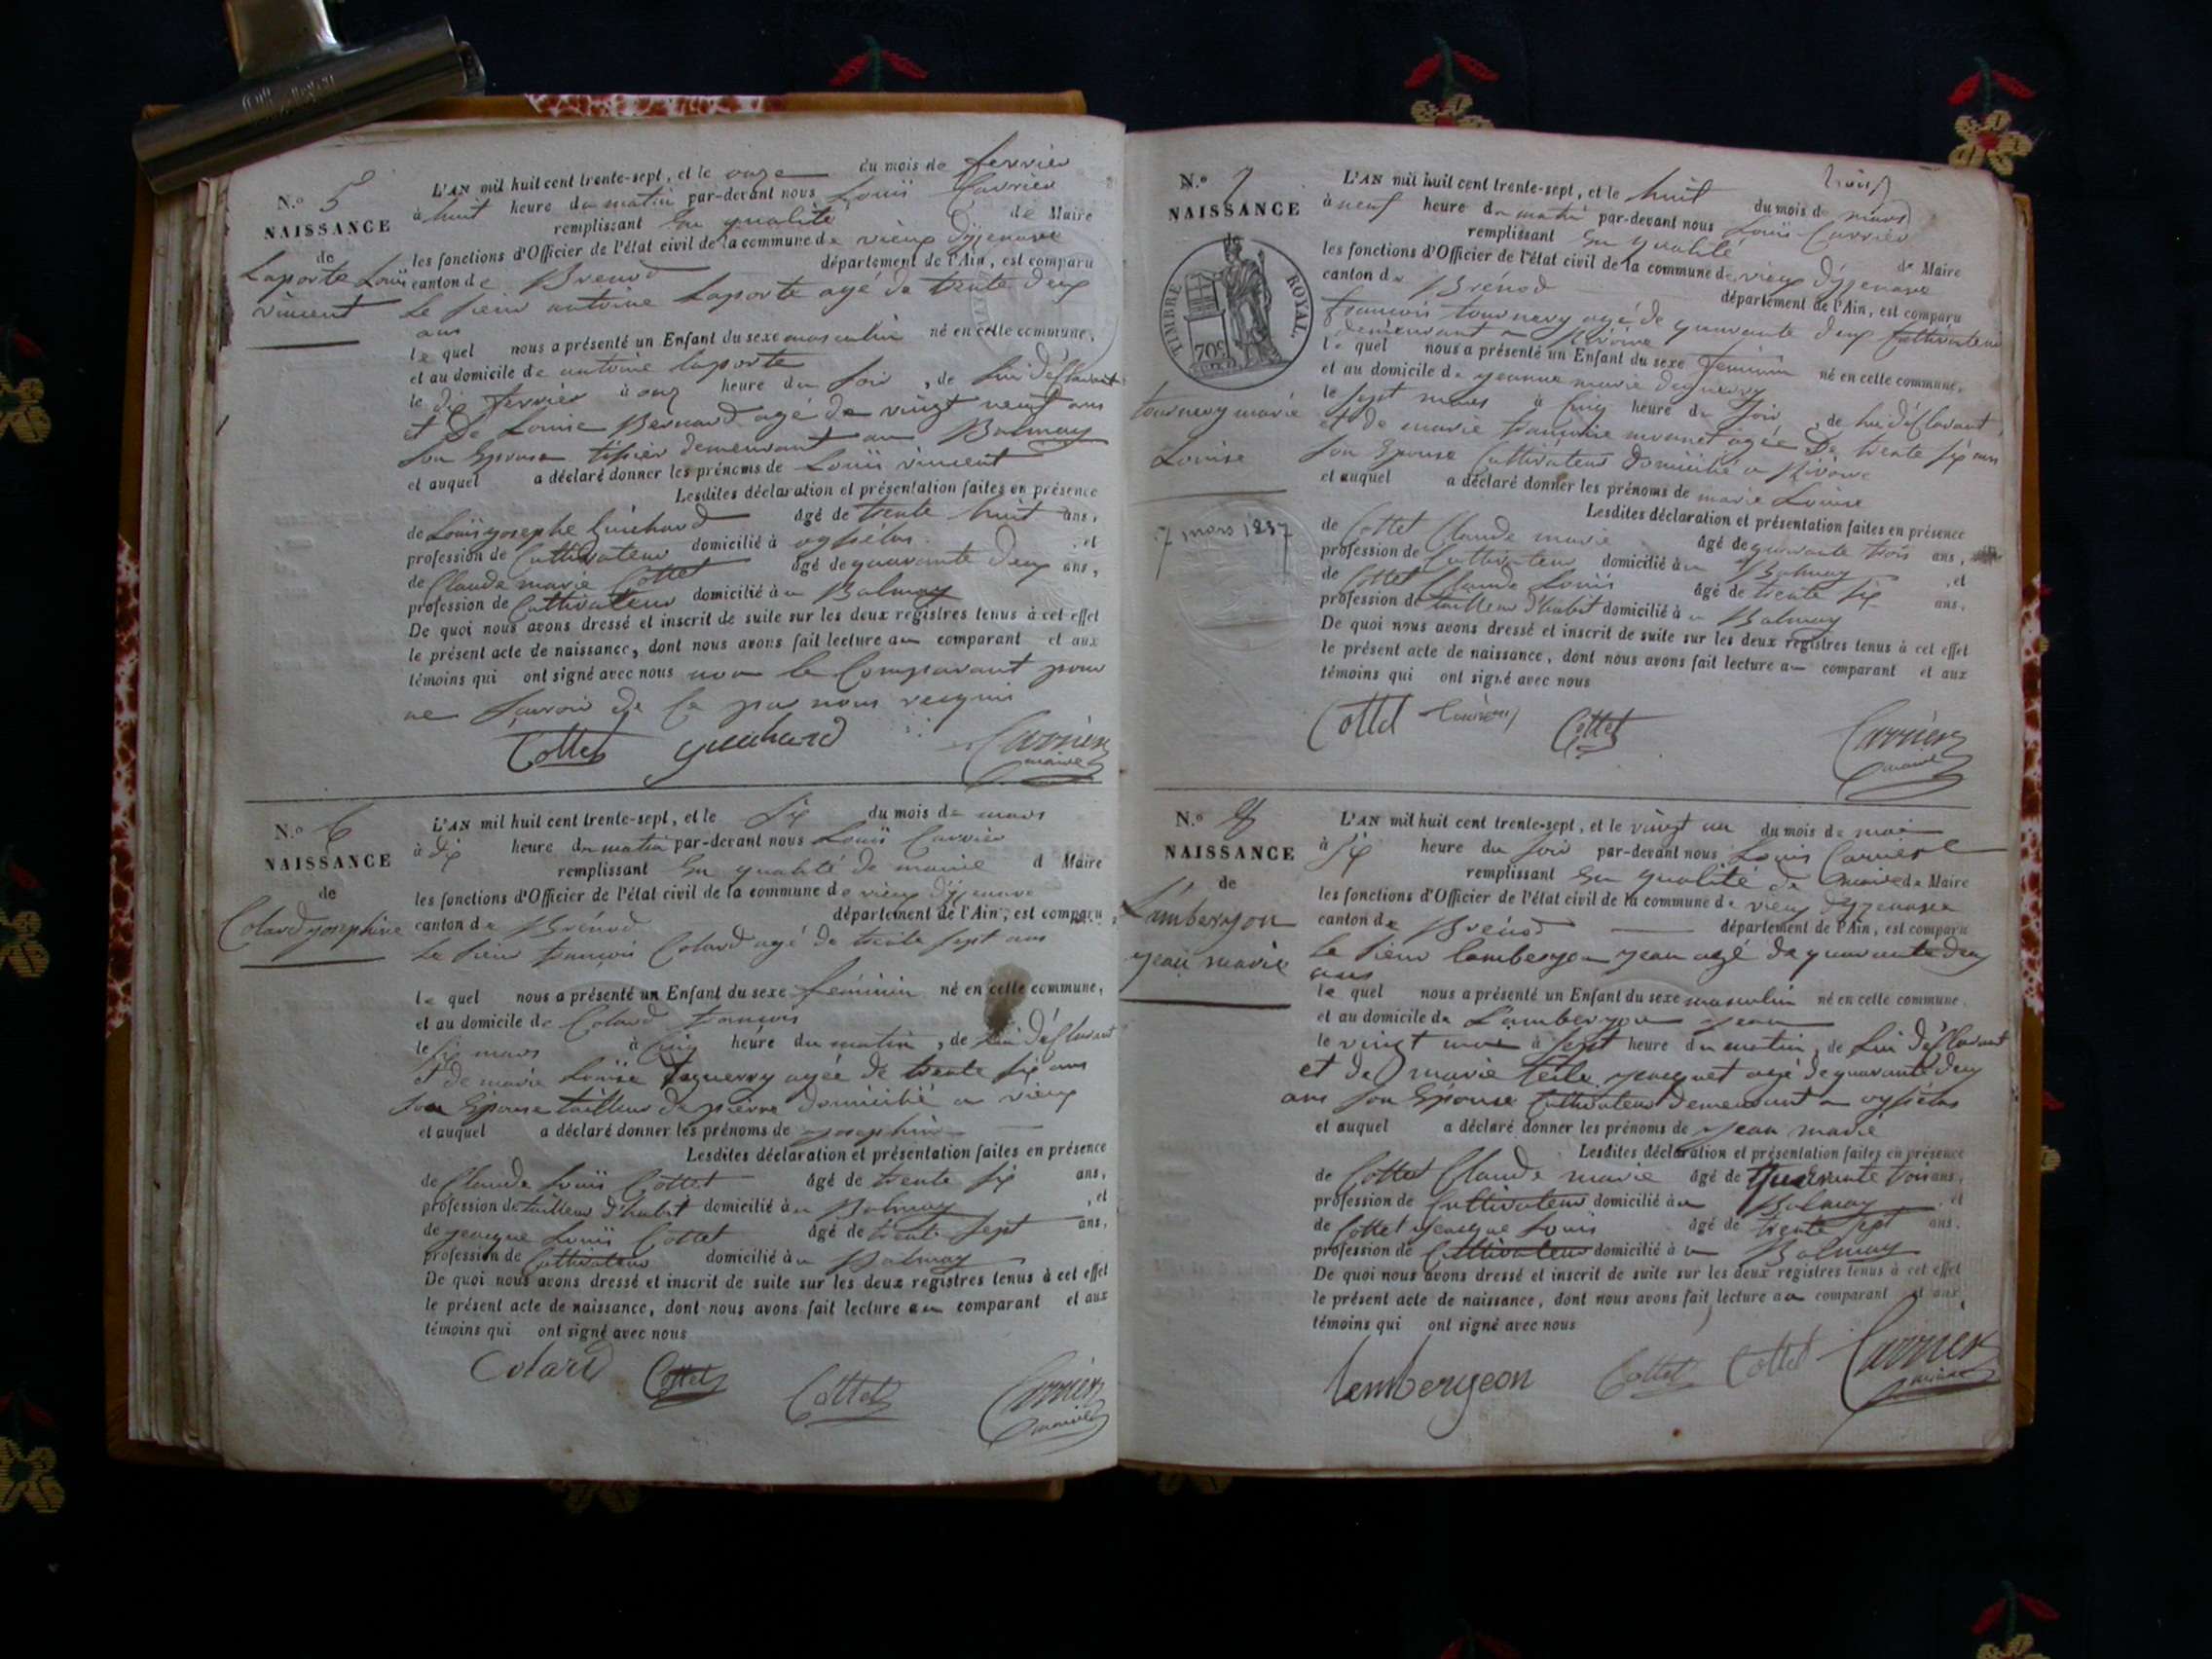 N.º 5
NAISSANCE
de
Laporte Louis
vincent
L'AN mil huit cent trente-sept, et le onze du mois de fevrier
à huit heure du matin par-devant nous Louis Carrier
remplissant en qualité de Maire
les fonctions d'Officier de l'état civil de la commune de vieux d'yzenave
canton de Brénod département de l'Ain, est comparu
Le sieur antoine Laporte agé de trente deux
ans
le quel nous a présenté un Enfant du sexe masculin né en cette commune,
et au domicile de antoine laporte
le dix fevrier à onz heure du soir, de lui déclarant
et De Louise Bernard agé de vingt neuf ans
son Epouse tissier demeurant au Balmay
et auquel a déclaré donner les prénoms de Louis vincent
Lesdites déclaration et présentation faites en présence
de Louis josephe Guichard âgé de trente huit ans,
profession de Cultivateur domicilié à , et
de Claude marie Cottet âgé de quarante deux ans,
profession de Cultivateur domicilié à Balmay
De quoi nous avons dressé et inscrit de suite sur les deux registres tenus à cet effet
le présent acte de naissance, dont nous avons fait lecture au comparant et aux
témoins qui ont signé avec nous non le Comparant pour
ne savoir de Ce par nous requis
Cottet guichard Carrier
maire
N.º 6
NAISSANCE
de
Colard josephine
L'AN mil huit cent trente-sept, et le Six du mois de mars
à dix heure du matin par-devant nous Louis Carrier
remplissant en qualité de maire d Maire
les fonctions d'Officier de l'état civil de la commune de vieux d'yzenave
canton de Brénod département de l'Ain, est comparu
Le sieur francois Colard agé de trente sept ans
le quel nous a présenté un Enfant du sexe féminin né en cette commune,
et au domicile de Colard francois
le six mars à Cinq heure du matin, de lui déclarant
et de marie Louise deguerry agée de trente six ans
son Epouse tailleur de pierre domicilié a vieux
et auquel a déclaré donner les prénoms de josephine
Lesdites déclaration et présentation faites en présence
de Claude Louis Cottet âgé de trente six ans,
profession de tailleur d'habit domicilié à Balmay , et
de jacque Louis Cottet âgé de trente sept ans,
profession de Cultivateur domicilié à Balmay
De quoi nous avons dressé et inscrit de suite sur les deux registres tenus à cet effet
le présent acte de naissance, dont nous avons fait lecture au comparant et aux
témoins qui ont signé avec nous
Colard Cottet Cottet Carrier
maire
trois
N.º 7
NAISSANCE
de
TIMBRE ROYAL
70c
tournery marie
Louise
7 mars 1837
L'AN mil huit cent trente-sept, et le huit du mois de mars
à neuf heure du matin par-devant nous Louis Carrier
remplissant en qualité de Maire
les fonctions d'Officier de l'état civil de la commune de vieux d'yzenave
canton de Brénod département de l'Ain, est comparu
francois tournery agé de quarante deux Cultivateur
demeurant a
le quel nous a présenté un Enfant du sexe feminin né en cette commune,
et au domicile de jeanne marie deguerry
le sept mars à Cinq heure du soir, de lui déclarant
et de marie francoise monnet agée De trente six ans
son Epouse Cultivateur domicilié a
et auquel a déclaré donner les prénoms de marie Louise
Lesdites déclaration et présentation faites en présence
de Cottet Claude marie âgé de quarante trois ans,
profession de Cultivateur domicilié à Balmay , et
de Cottet Claude Louis âgé de trente six ans,
profession de tailleur d'habit domicilié à Balmay
De quoi nous avons dressé et inscrit de suite sur les deux registres tenus à cet effet
le présent acte de naissance, dont nous avons fait lecture au comparant et aux
témoins qui ont signé avec nous
Cottet Cottet Carrier
maire
N.º 8
NAISSANCE
de
Lambergeon
jean marie
L'AN mil huit cent trente-sept, et le vingt un du mois de mai
à six heure du soir par-devant nous Louis Carrier
remplissant en qualité de maire de Maire
les fonctions d'Officier de l'état civil de la commune de vieux d'yzenave
canton de Brénod département de l'Ain, est comparu
Le sieur lambergeon jean agé de quarante deux
ans
le quel nous a présenté un Enfant du sexe masculin né en cette commune,
et au domicile de Lambergeon jean
le vingt un à sept heure du matin, de lui déclarant
et de marie jacquet agé de quarante deux
ans son Epouse Cultivateur demeurant a
et auquel a déclaré donner les prénoms de jean marie
Lesdites déclaration et présentation faites en présence
de Cottet Claude marie âgé de quarante trois ans,
profession de Cultivateur domicilié à Balmay , et
de Cottet jacque Louis âgé de trente sept ans,
profession de Cultivateur domicilié à Balmay
De quoi nous avons dressé et inscrit de suite sur les deux registres tenus à cet effet
le présent acte de naissance, dont nous avons fait lecture au comparant et aux
témoins qui ont signé avec nous
lembergeon Cottet Cottet Carrier
maire